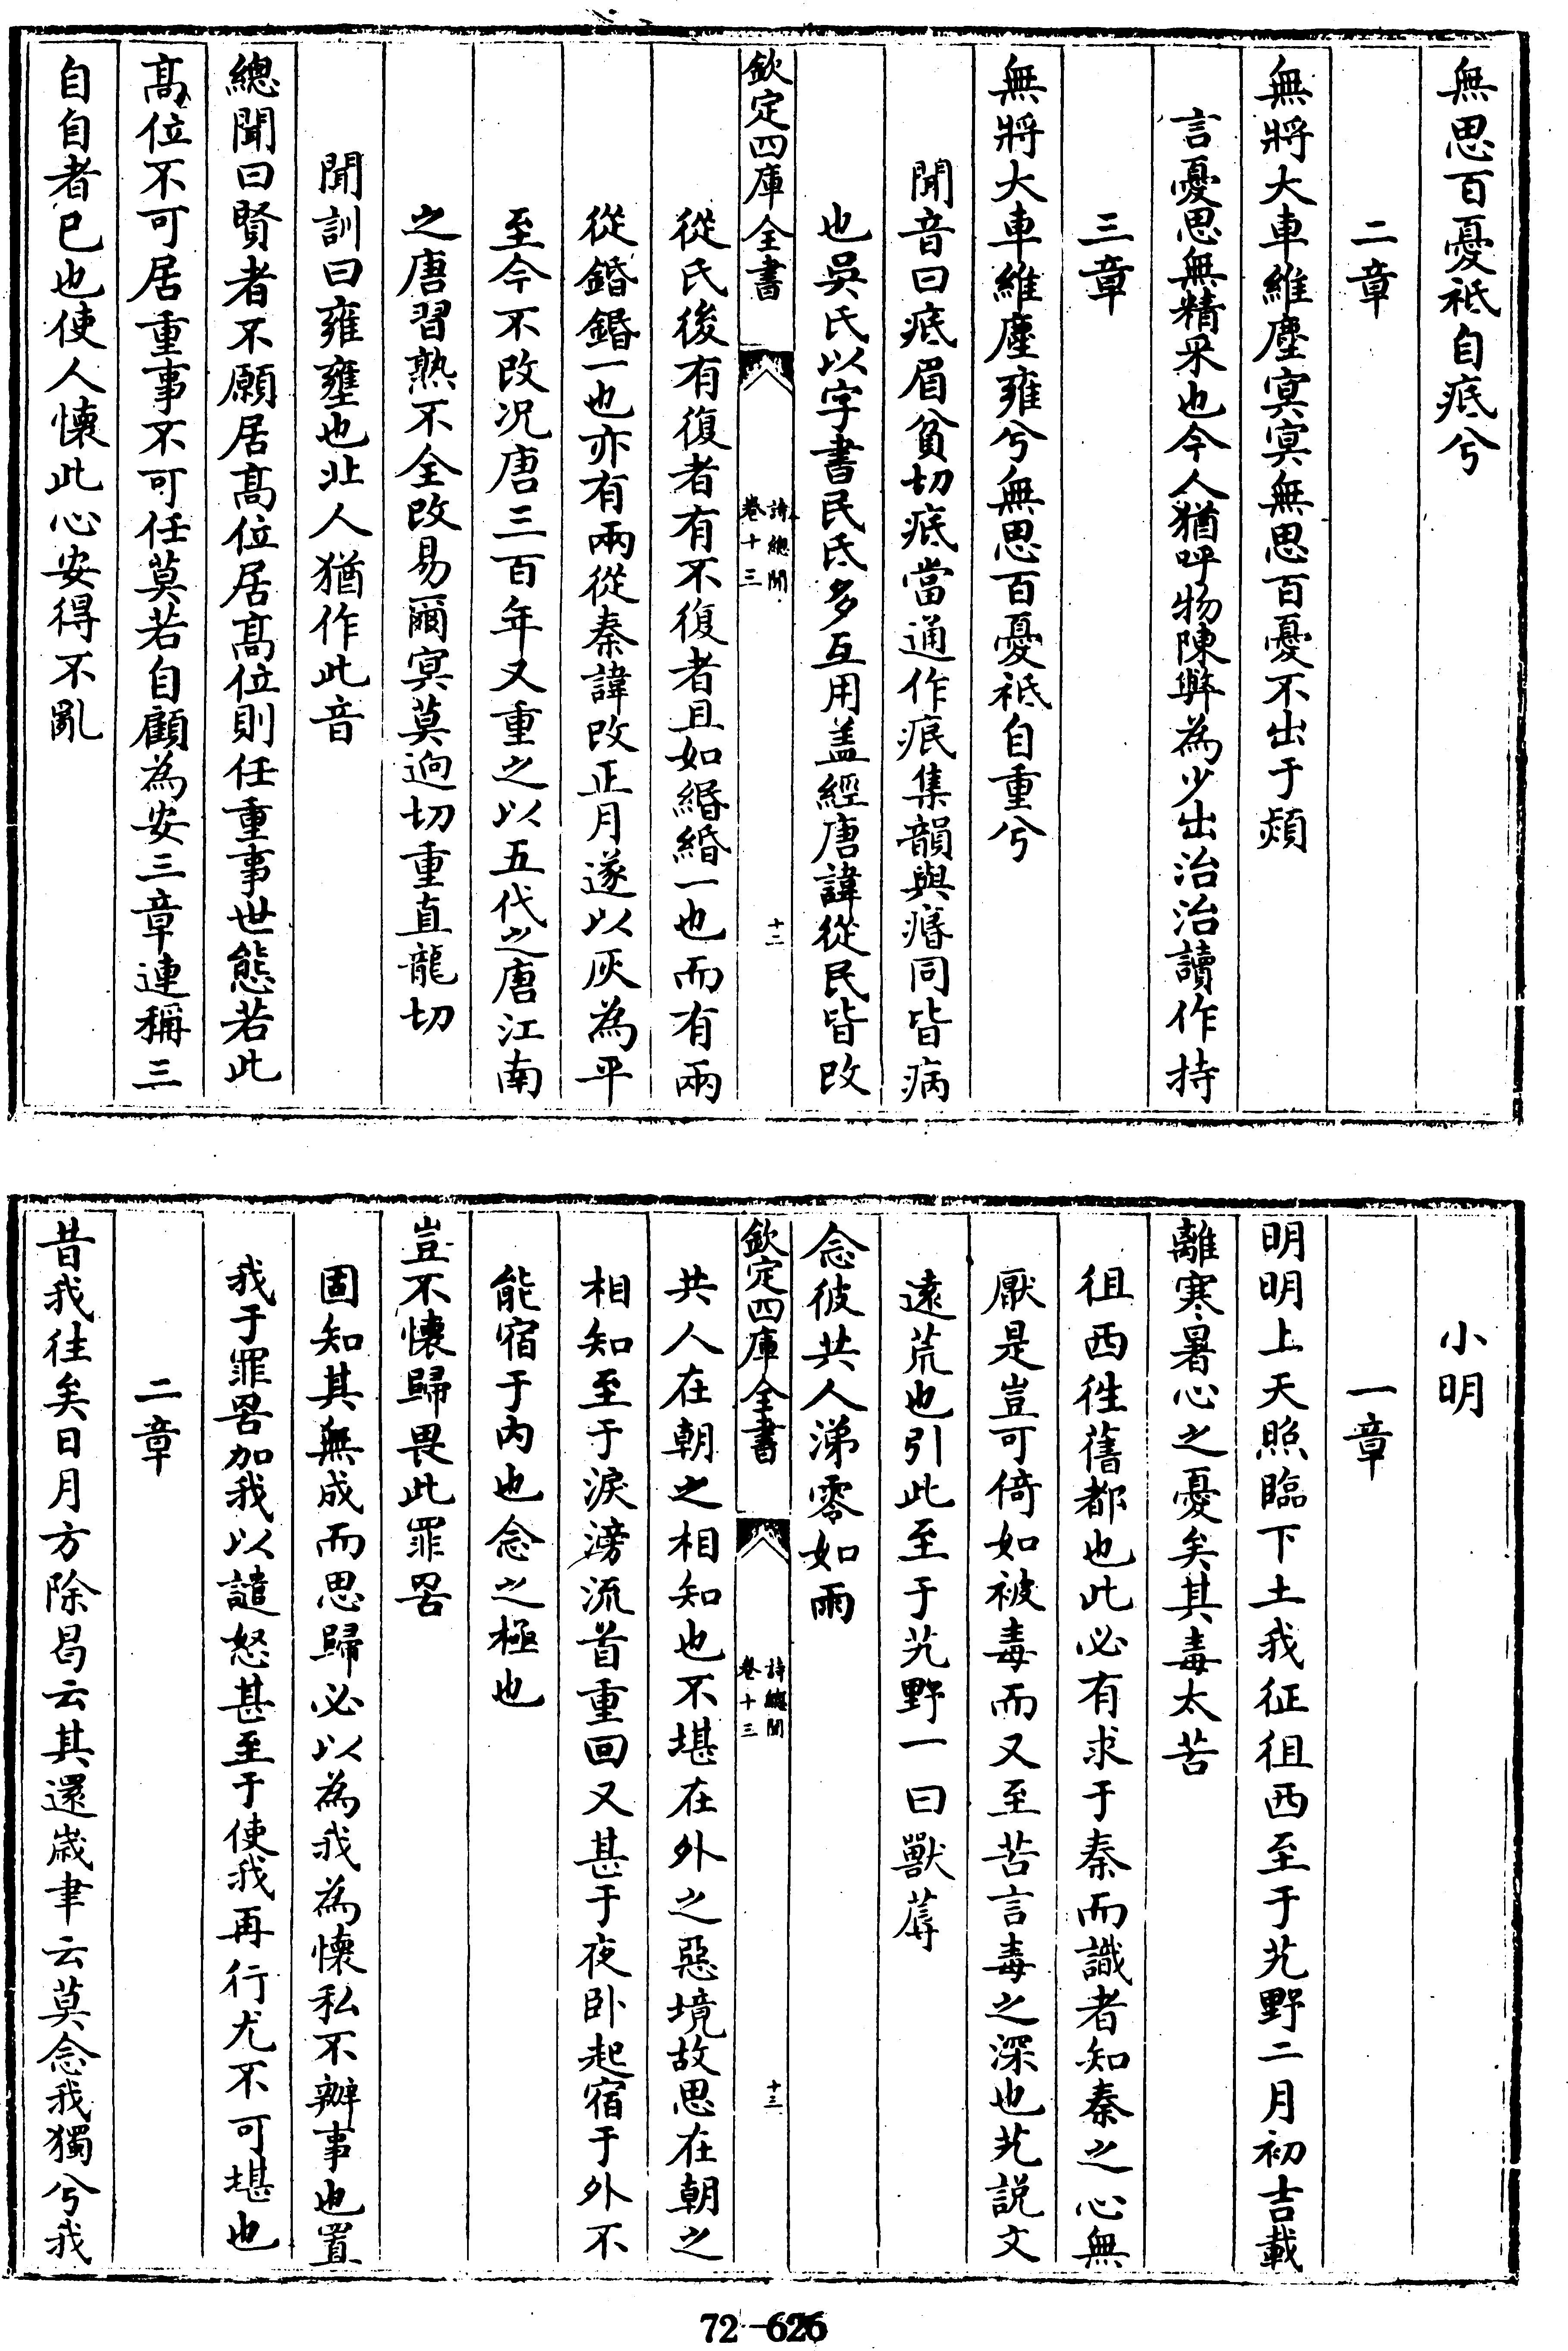 無思百憂祗自疷兮
二章
無將大車維塵冥冥無思百憂不出于熲
言憂思無精采也今人猶呼物陳弊為少出治治讀作持
三章
無將大車維塵雍兮無思百憂祗自重兮
聞音曰疷眉貧切疷當通作痕集韻與瘄同皆病
也吳氏以字書民氐多互用盖經唐諱從民皆改
欽定四庫全書
詩總聞
卷十三
十二
從氏後有復者有不復者且如緡緍一也而有兩
從鍲鍲一也亦有兩從秦諱改正月遂以灰為平
至今不改况唐三百年又重之以五代之唐江南
之唐習熟不全改易爾冥莫迥切重直龍切
聞訓曰雍壅也北人猶作此音
總聞曰賢者不願居髙位居髙位則任重事世態若此
髙位不可居重事不可任莫若自顧為安三章連稱三
自自者已也使人懐此心安得不亂
小明
一章
明明上天照臨下土我征徂西至于艽野二月初吉載
離寒暑心之憂矣其毒太苦
徂西徃舊都也此必有求于秦而識者知秦之心無
厭是豈可倚如被毒而又至苦言毒之深也艽説文
逺荒也引此至于艽野一曰獸蓐
念彼共人涕零如雨
欽定四庫全書
詩總聞
卷十三
十三
共人在朝之相知也不堪在外之惡境故思在朝之
相知至于淚滂流首重回又甚于夜卧起宿于外不
能宿于内也念之極也
豈不懐歸畏此罪罟
固知其無成而思歸必以為我為懐私不辦事也置
我于罪罟加我以譴怒甚至于使我再行尤不可堪也
二章
昔我徃矣日月方除曷云其還嵗聿云莫念我獨兮我
72-626